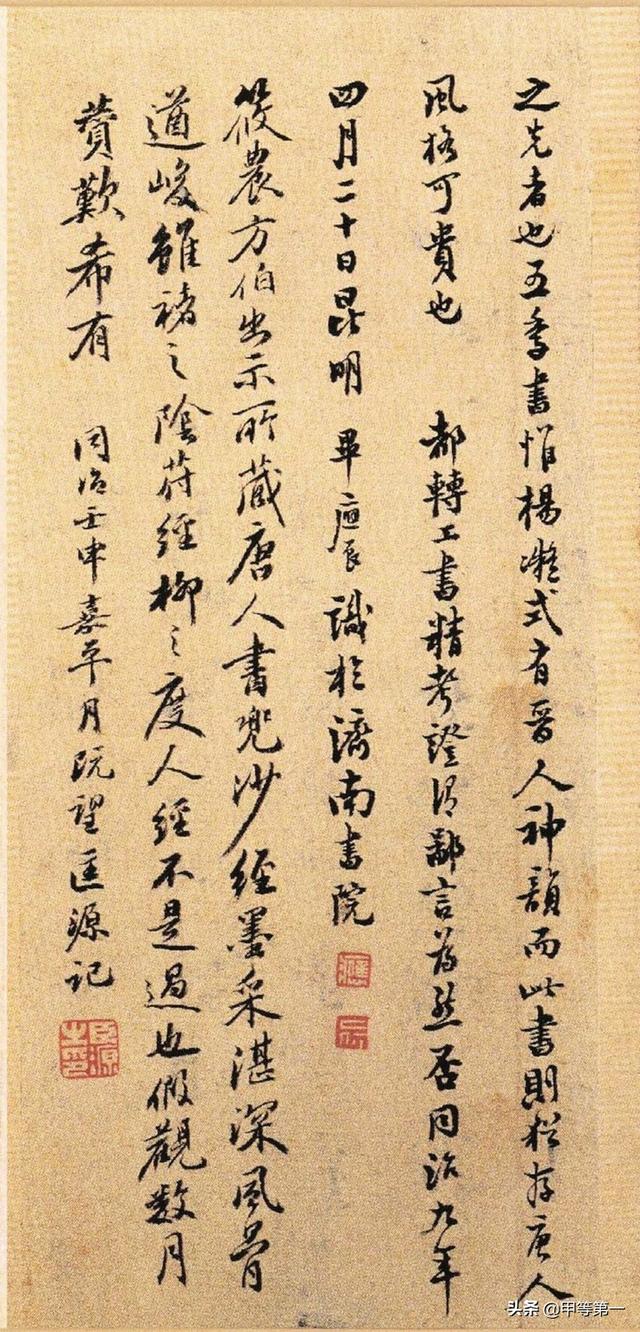 之先者也五季書惟楊凝式有晉人神韻而此書則猶存唐人
風格可貴也 都轉工書精考證得鄙言爲然否同治九年
四月二十日昆明 畢應辰識於濟南書院
應
辰
筱農方伯出示所藏唐人書兜沙經墨采湛深風骨
遒峻雖褚之陰符經柳之度人經不是過也假觀數月
贊歎希有 同治壬申嘉平月既望匡源記
匡源之印
头条 @甲等第一